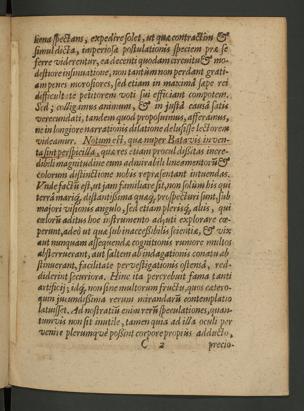 liena spectans, expedire solet, ut quæ contractim &
simul dicta, imperiosa postulationis speciem præ se
ferre viderentur, ea decenti quodam circuitu & mo-
destiore insinuatione, non tantùm non perdant grati-
am penes morosiores, sed etiam in maxima sæpe rei
difficultate petitorem voti sui efficiant compotem.
Sed; colligamus animum, & in justa causâ satis
verecundati, tandem quod proposuimus, afferamus,
ne in longiore narrationis dilatione delusisse lectorem
videamur. Notum est, quæ nuper Batavis inven-
ta sint perspicilla, quæ res etiam procul dissitas incre-
dibili magnitudine cum admirabili lineamentorũ &
colorum distinctione nobis repræsentant intuendas.
Vnde factũ est, ut jam familiare sit, non solùm his qui
terrâ mariq; distantissima quæq; prospecturi sunt, sub
majori visionis angulo, sed etiam plerisq; aliis, qui
cælorũ aditus hoc instrumento adjuti explorare cæ-
perunt, adeò ut quæ sub inaccessibilis scientiæ, & vix
aut nunquam assequendæ cognitionis rumore multos
absterruerant, aut saltem ab indagationis conatu ab-
stinuerant, facilitate pervestigationis ostensâ, red-
diderint securiora. Hinc ita percrebuit fama tanti
artificij; idq; non sine multorum fructu, quos cætero-
quin jucundissima rerum mirandarũ contemplatio
latuisset. Ad nostratiũ enim rerũ speculationes, quan-
tumvis non sit inutile, tamen quia ad illa oculi per
venire plerumquè possint corpore propriùs adducto,
C 2 precio-